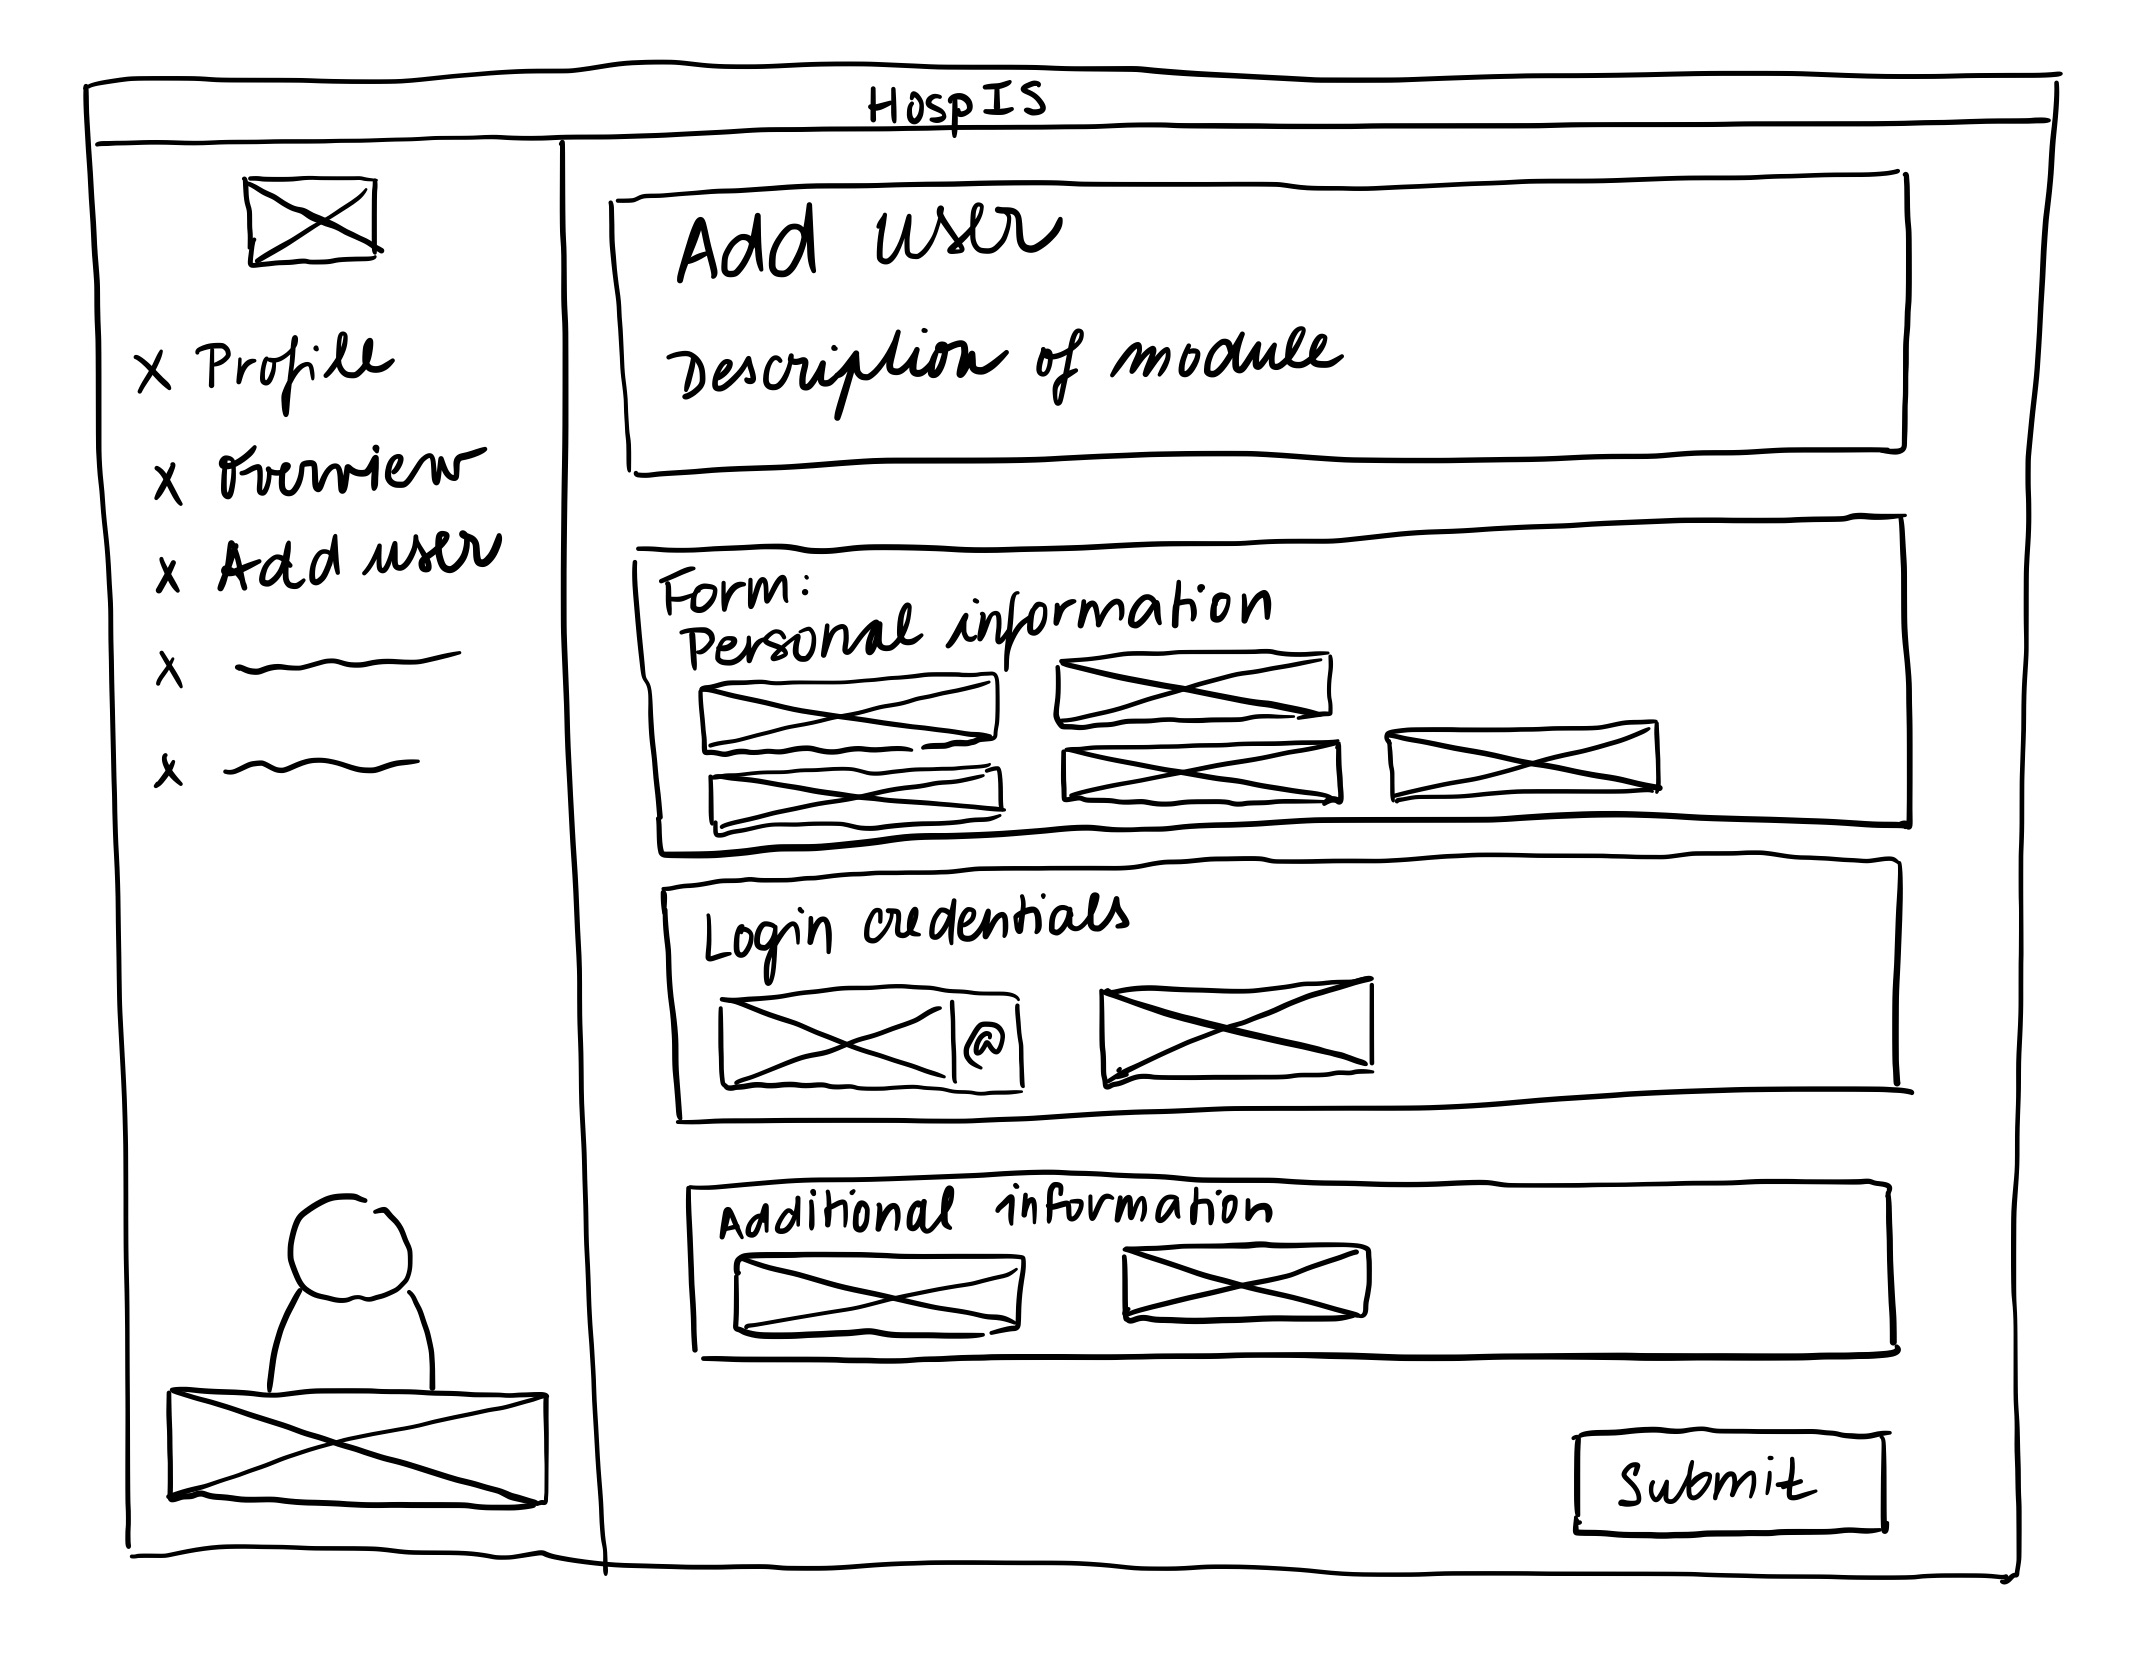 HospIS
x Profile
x Overview
x Add user
x
x
Add user
Description of module
Form:
Personal information
Login credentials
@
Additional information
Submit